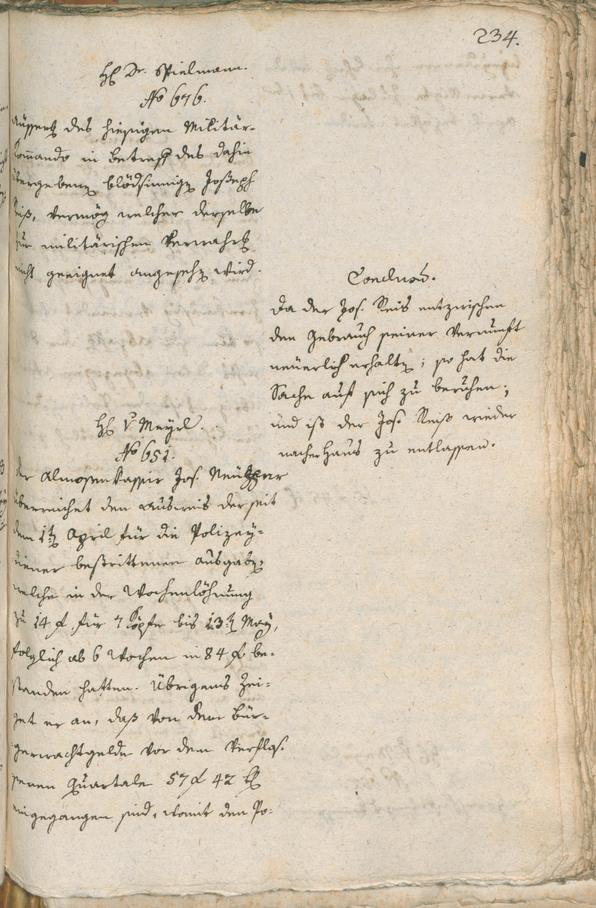 234.
H. Dr. Spielmann.
No 676.
Äusserung des hiesigen Militär-
Commando in Betreff des dahin
übergebenen blödsinnigen Joseph
Reiß, vermög welcher derselbe
zur militärischen Verwahrung
nicht geeignet angesehen wird.
Conclusum.
Da der Jos. Reis entzwischen
den Gebrauch seiner Vernunft
neuerlich erhalten; so hat die
Sache auf sich zu beruhen;
und ist der Jos. Reiß wieder
nacher Haus zu entlassen.
H. v Mayrl.
No 651.
der Almosenkassier Jos.
überreichet den Ausweis der seit
dem 1ten April für die Polizey-
diener bestrittenen Ausgaben,
welche in der Wochenlöhnung
zu 14 f. für 7 Köpfe bis 13ten May,
folglich ab 6 Wochen in 84 f. be-
standen hatten. Übrigens zei-
get er an, daß von dem Bür-
gerwachtgelde vor dem verflos-
senen Quartale 57 f 42 kr
eingegangen sind, womit den Po-